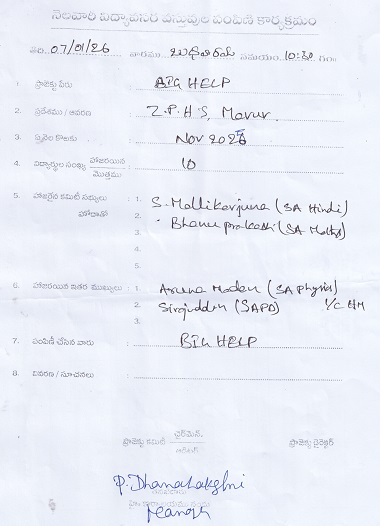 నెలవారి విద్యావసర వస్తువుల పంపిణి కార్యక్రమం
తేది. 07/01/26 వారము బుధవారము సమయం. 10:30 గం॥
1. ప్రాజెక్టు పేరు : BIG HELP
2. ప్రదేశము / ఆవరణ : Z.P.H.S, Mavur.
3. ఏ నెల కొరకు : Nov 2025
4. విద్యార్థుల సంఖ్య హాజరయిన / మొత్తము : 10
5. హాజరైన కమిటీ సభ్యులు హోదాతో : 1. S. Mallikarjuna (SA Hindi)
2. Bhanu prakash (SA Maths)
3.
4.
5.
6. హాజరయిన ఇతర ముఖ్యులు : 1. Aruna Madan (SA Physics)
2. Sirajudden (SAPD) I/C HM
3.
7. పంపిణి చేసిన వారు : BIG HELP
8. వివరణ / సూచనలు :
ప్రాజెక్టు కమిటీ ఛైర్మెన్. ప్రాజెక్టు డైరెక్టర్
P. Dhanalakshmi